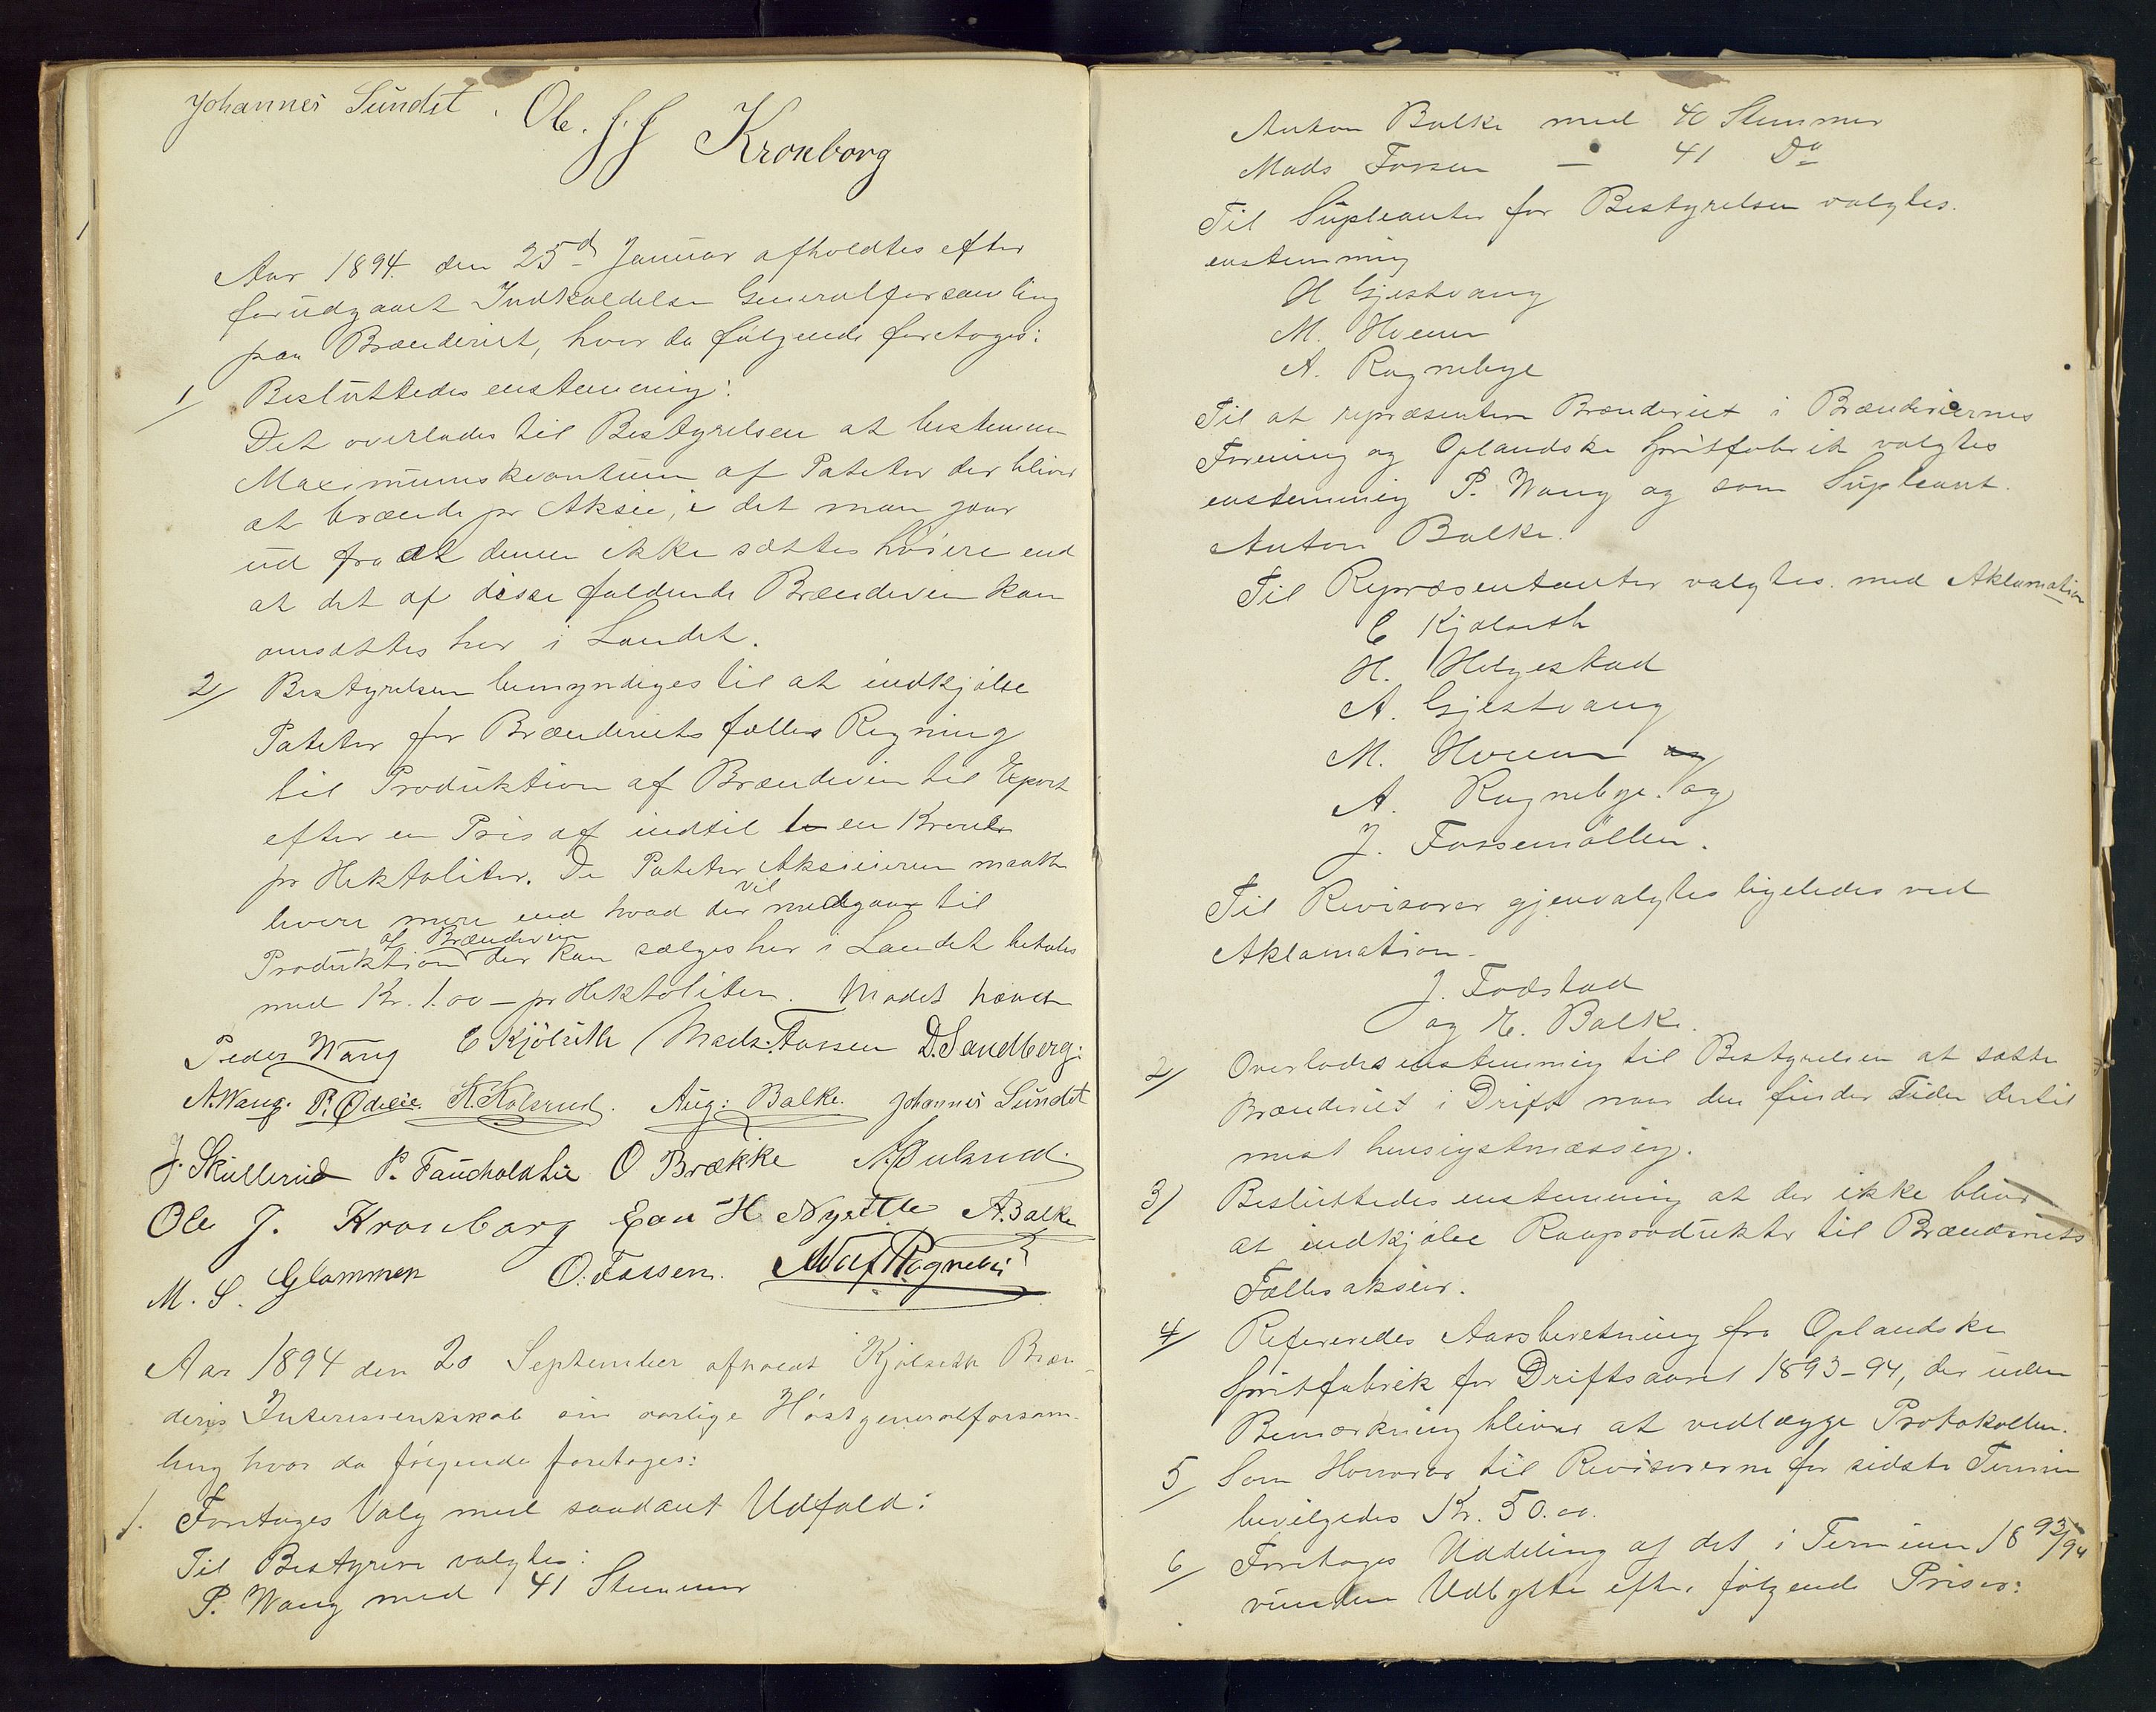 Johannes Sundet. Ole. J. J Kronborg
Aar 1894. den 25d Januar afholdtes efter
forudgaaet Indkaldelse Generalforsamling
paa Brænderiet, hvor da følgende foretoges:
1/ Besluttedes enstemmig:
Det overlades til Bestyrelsen at bestemme
Maximumskvantum af Poteter der bliver
at brænde pr Aksie, i det man gaar
ud fra at denne ikke sættes høiere end
at det af disse faldende Brændevin kan
omsættes her i Landet.
2/ Bestyrelsen bemyndiges til at indkjøbe
Poteter for Brænderiets fælles Regning
til Produktion af Brændevin til Export
efter en Pris af indtil en Krone
pr Hektoliter. De Poteter Aksieierne maatte
levere mere end hvad der vil medgaar til
Produktion af Brændevin der kan sælges her i Landet betales
med Kr. 1.00 – pr Hektoliter. Mødet hævet
Peder Wang C Kjölseth Mads. Fossen D. Sandberg.
A. Wang. P. Ødeie. K. Kolsrud. Aug: Balke. Johannes Sundet
J. Skullerud P. Fauchaldlie O Brække
Ole J. Kronborg Even H Nyseth A. Balke
M. S. Glommen O. Fossen. Alf Rognebyi
Aar 1894 den 20 September afholdt Kjølseth Bræn-
deris Interessentskab sin aarlige Høstgeneralforsam-
ling hvor da følgende foretoges:
1. Foretoges Valg med saadant Udfald:
Til Bestyrere valgtes:
P. Wang med 41 Stemmer
Anton Balke med 40 Stemmer
Mads Fossen — 41 Do
Til Supleanter for Bestyrelsen valgtes.
enstemmig
H Gjestvang
M. Hveem
A. Rognebye
Til at repræsentere Brænderiet i Brænderiernes
Forening og Oplandske Spritfabrik valgtes
enstemmig P. Wang og som Supleant.
Anton Balke.
Til Repræsentanter valgtes med Aklamation
C Kjølseth
H. Helgestad
A. Gjestvang
M. Hveem og
A. Rognebye. og
J. Fossemøllen.
Til Revisorer gjenvalgtes ligeledes ved
Aklamation.
J. Fodstad
og E. Balke.
2/ Overlodes enstemmig til Bestyrelsen at sætte
Brænderiet i Drift naar den finder Tiden dertil
mest hensigtsmæssig.
3/ Besluttedes enstemmig at der ikke bliver
at indkjøbe Raaprodukter til Brænderiets
Fællesaksier.
4/ Refereredes Aarsberetning fra Oplandske
Spritfabrik for Driftsaaret 1893–94, der uden
Bemærkning bliver at vedlægge Protokollen.
5/ Som Honorar til Revisorerne for sidste Termin
bevilgedes Kr. 50.00.
6/ Foretoges Uddeling af det i Terminen 1893/94
vundne Udbytte efter følgende Priser: